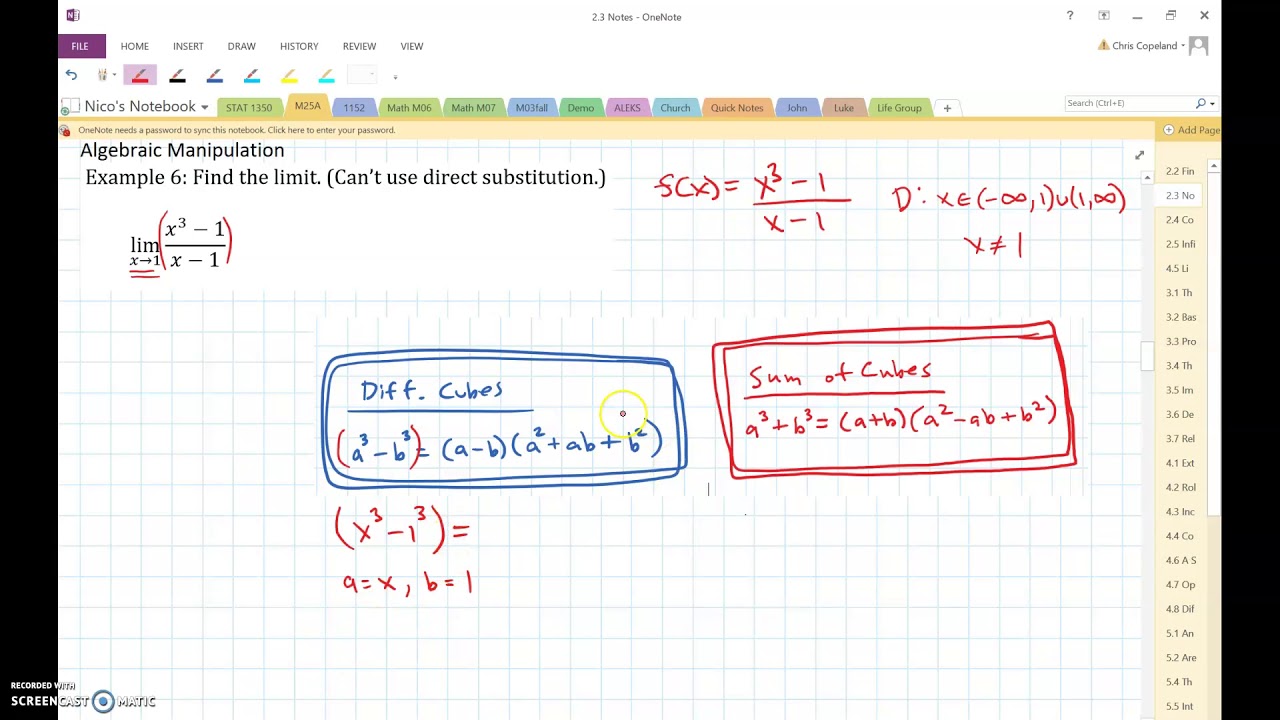 2.3 Notes - OneNote
?
FILE HOME INSERT DRAW HISTORY REVIEW VIEW
Chris Copeland
Nico's Notebook STAT 1350 M25A 1152 Math M06 Math M07 M03fall Demo ALEKS Church Quick Notes John Luke Life Group +
Search (Ctrl+E)
OneNote needs a password to sync this notebook. Click here to enter your password.
Add Page
Algebraic Manipulation
Example 6: Find the limit. (Can't use direct substitution.)
lim x→1 (x³ − 1 / x − 1)
f(x) = x³ − 1 / x − 1
D: x∈(−∞,1)∪(1,∞)
x ≠ 1
Diff. Cubes
(a³ − b³) = (a−b)(a² + ab + b²)
Sum of Cubes
a³ + b³ = (a+b)(a² − ab + b²)
(x³ − 1³) =
a = x, b = 1
2.2 Fin
2.3 No
2.4 Co
2.5 Infi
4.5 Li
3.1 Th
3.2 Bas
3.3 Pro
3.4 Th
3.5 Im
3.6 De
3.7 Rel
4.1 Ext
4.2 Rol
4.3 Inc
4.4 Co
4.6 A S
4.7 Op
4.8 Dif
5.1 An
5.2 Are
5.4 Th
5.5 Int
RECORDED WITH
SCREENCAST MATIC